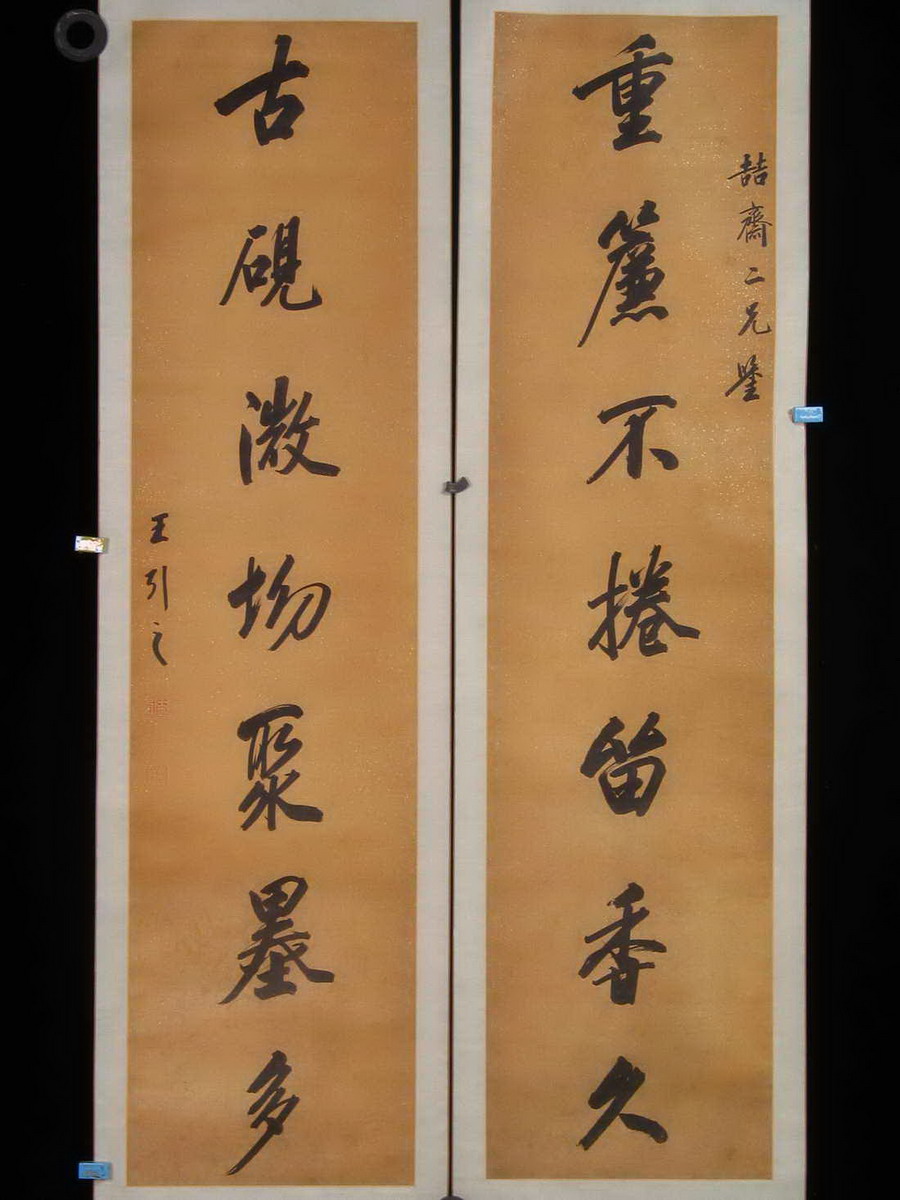 喆齋二兄鑒
重簾不捲留香久
古硯微坳聚墨多
王引之